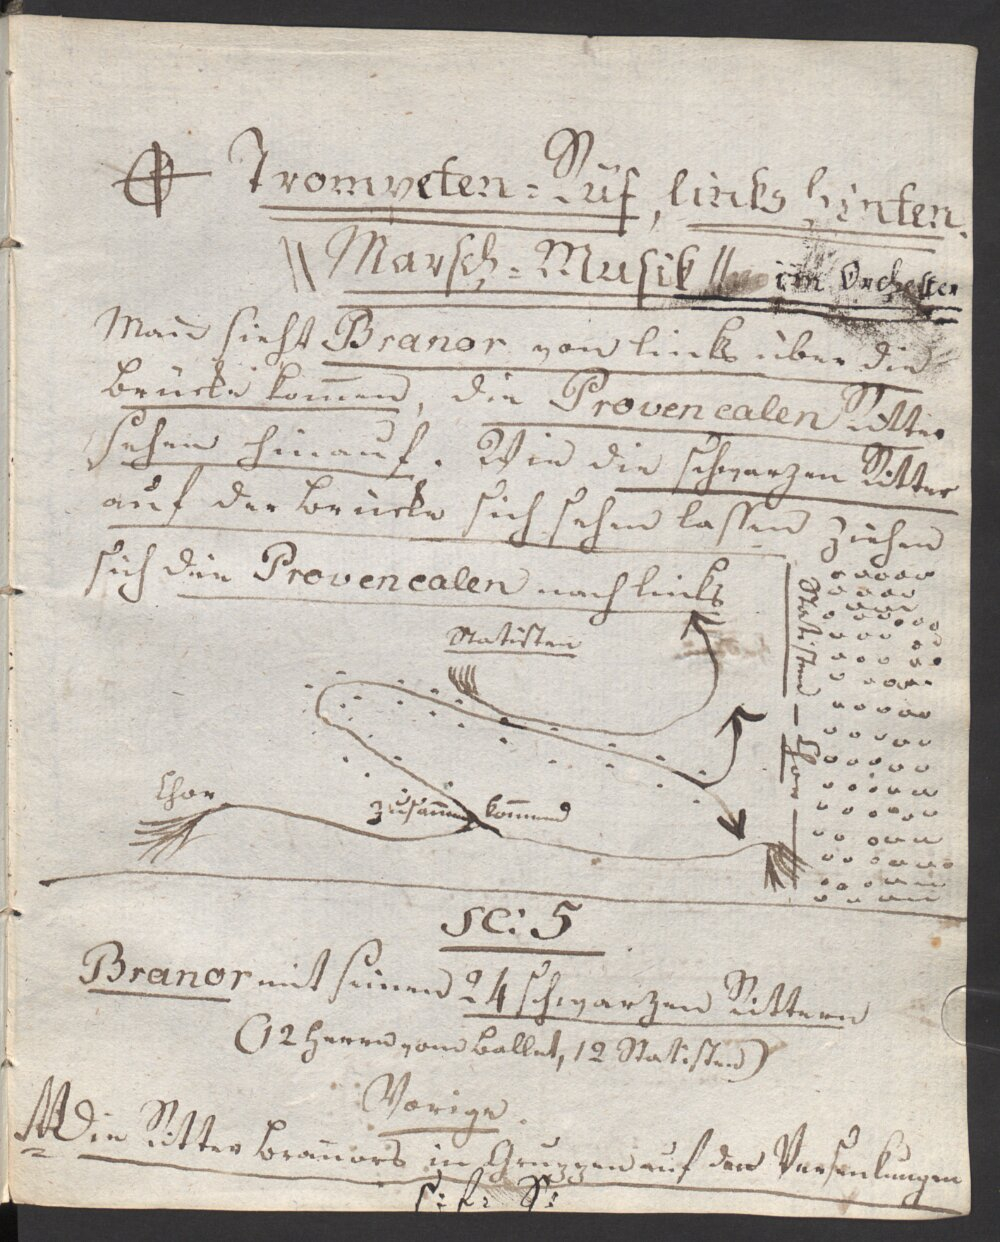 Trompeten=Ruf, links hinten.
Marsch=Musik im Orchester
Man sieht Branor von links über die
Brücke kommen, die Provencalen Ritter
sehen hinauf. Wie die schwarzen Ritter
auf der Brücke sich sehen lassen ziehen
sich die Provencalen nach links
Statisten
Statisten — Chor —
Chor
zusammen kommend
SC: 5
Branor mit seinen 24 schwarzen Rittern
(12 Herrn vom Ballet, 12 Statisten)
Vorige.
Die Ritter Branors in Gruppen auf den Versenkungen